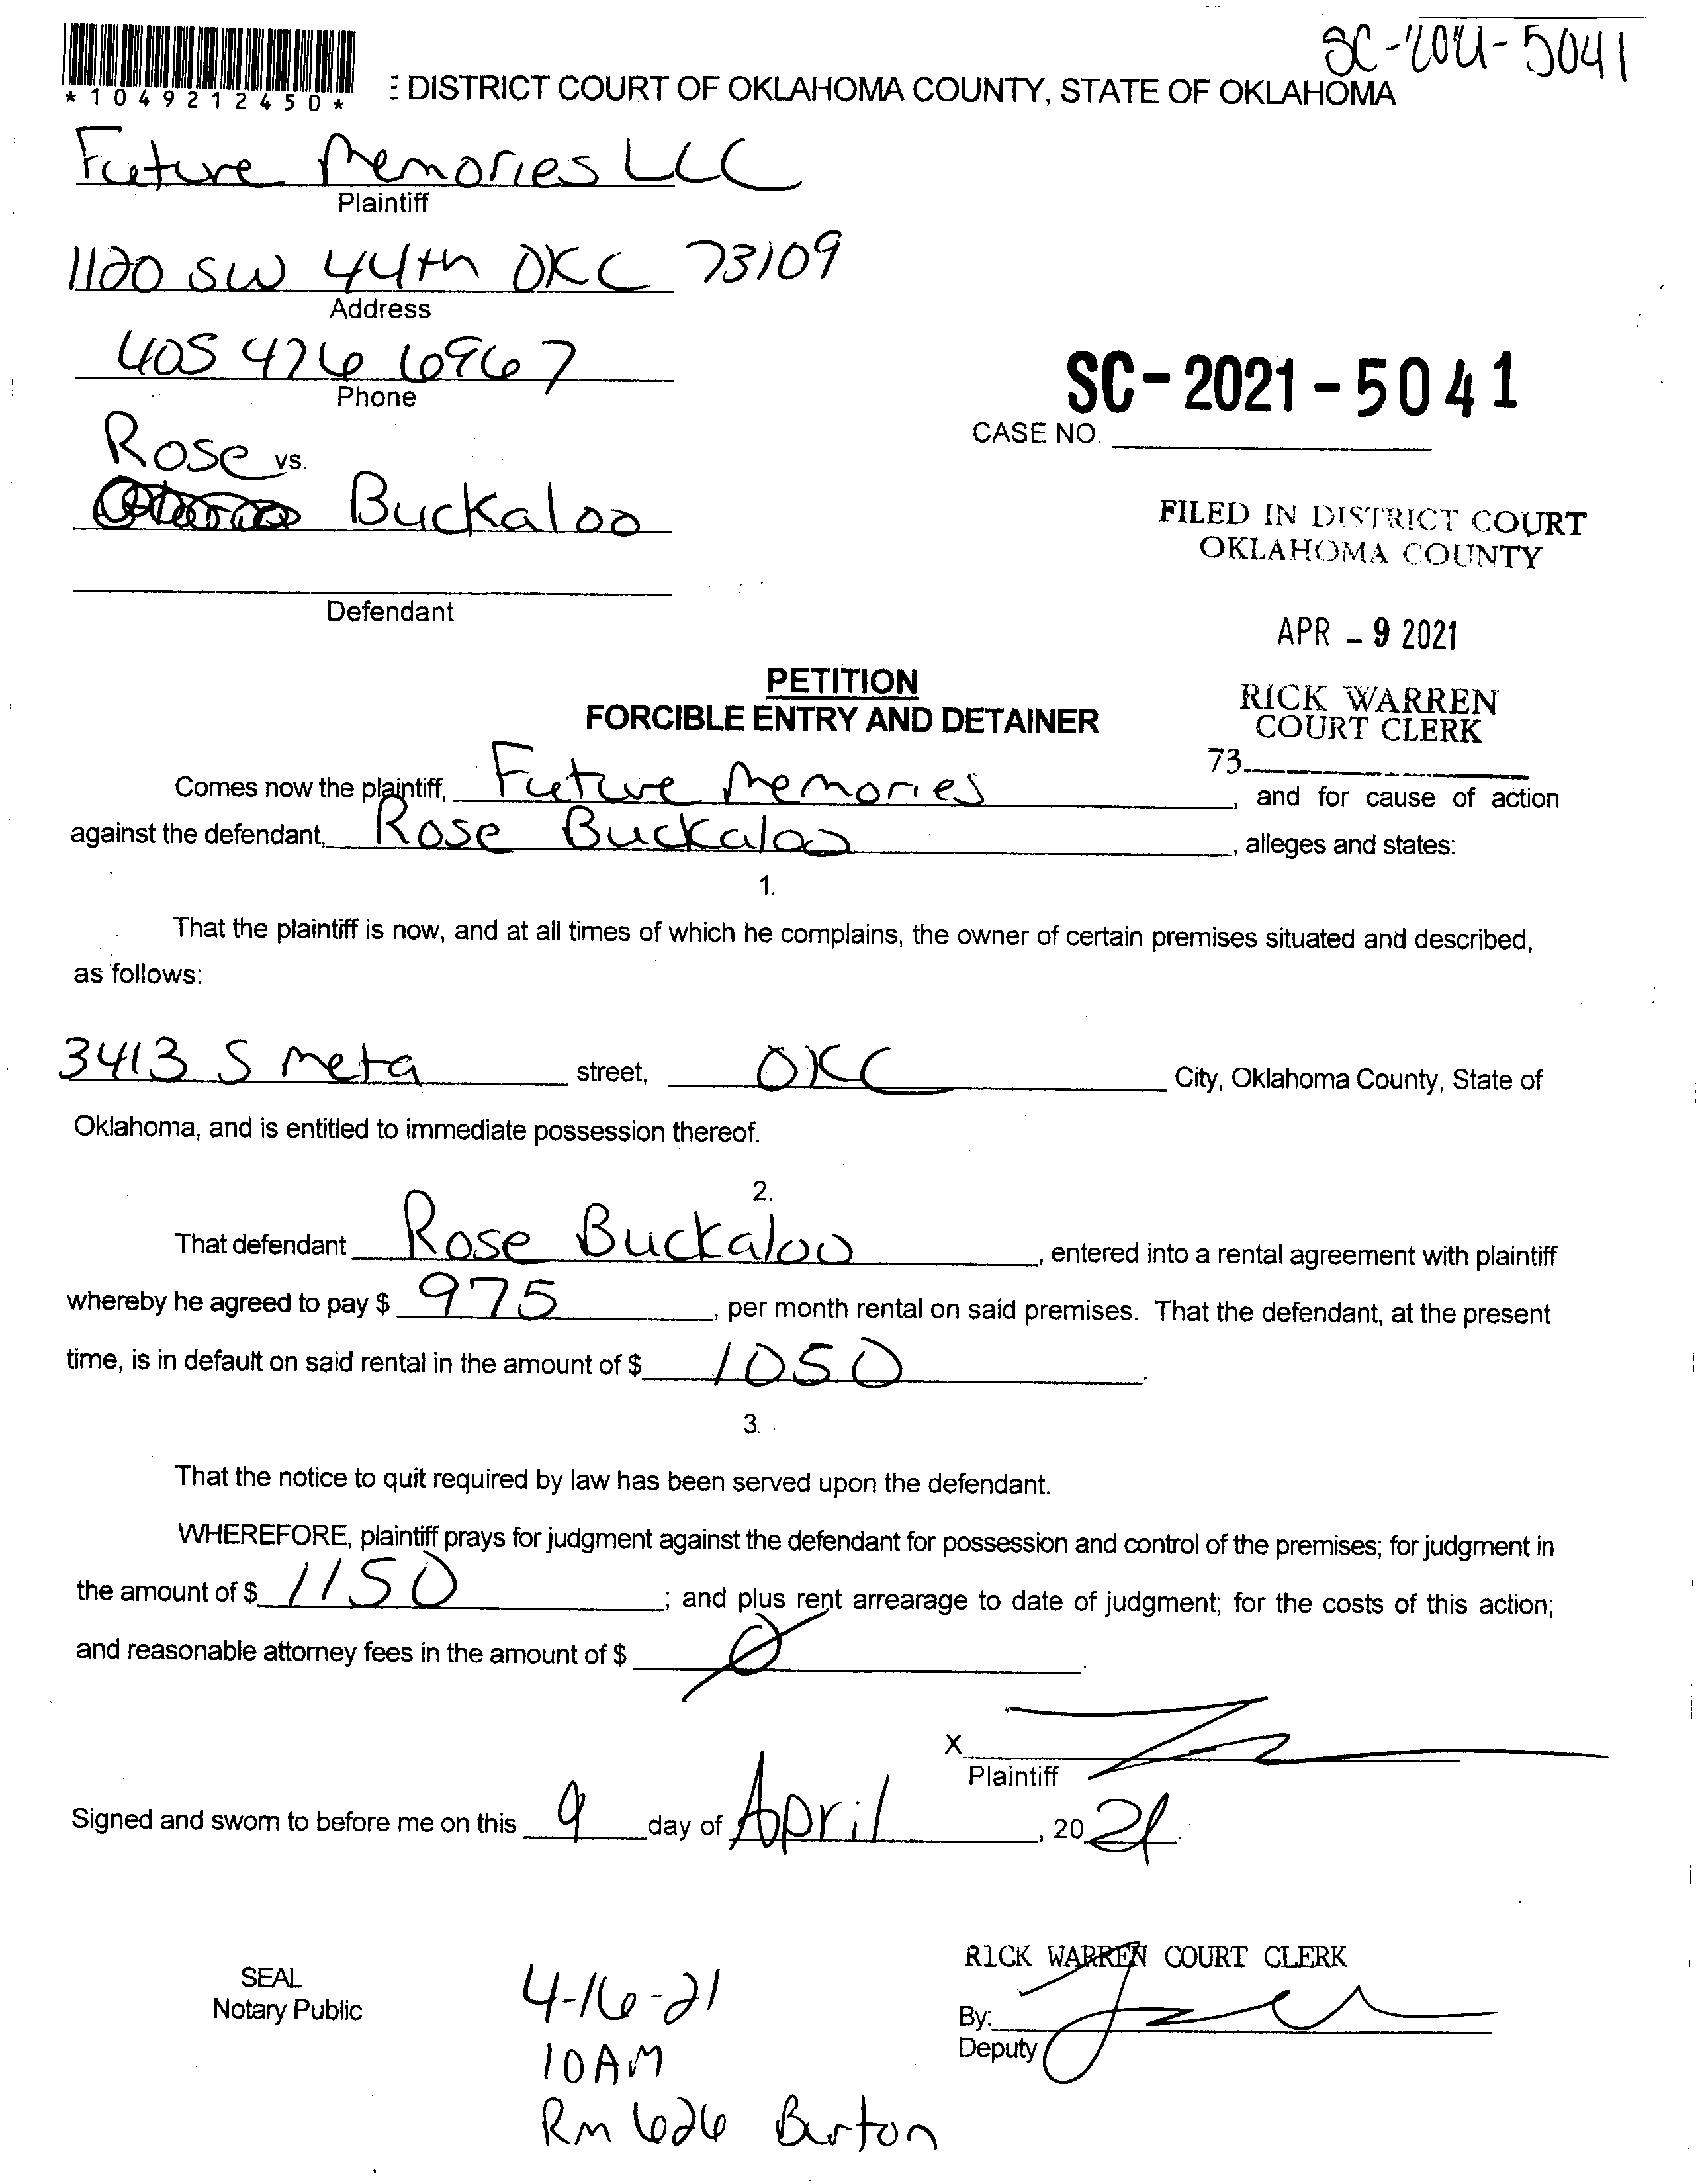 SC-2021-5041
*1049212450*
E DISTRICT COURT OF OKLAHOMA COUNTY, STATE OF OKLAHOMA
Future Memories LLC
Plaintiff
1120 SW 44th OKC 73109
Address
405 476 6967
Phone
SC-2021-5041
CASE NO.
Rose vs.
Buckaloo
FILED IN DISTRICT COURT
OKLAHOMA COUNTY
Defendant
APR - 9 2021
PETITION
FORCIBLE ENTRY AND DETAINER
RICK WARREN
COURT CLERK
73
Comes now the plaintiff, Future Memories, and for cause of action
against the defendant, Rose Buckaloo, alleges and states:
1.
That the plaintiff is now, and at all times of which he complains, the owner of certain premises situated and described,
as follows:
3413 S Meta street, OKC City, Oklahoma County, State of
Oklahoma, and is entitled to immediate possession thereof.
2.
That defendant Rose Buckaloo, entered into a rental agreement with plaintiff
whereby he agreed to pay $ 975, per month rental on said premises. That the defendant, at the present
time, is in default on said rental in the amount of $ 1050.
3.
That the notice to quit required by law has been served upon the defendant.
WHEREFORE, plaintiff prays for judgment against the defendant for possession and control of the premises; for judgment in
the amount of $ 1150; and plus rent arrearage to date of judgment; for the costs of this action;
and reasonable attorney fees in the amount of $ 0.
X
Plaintiff
Signed and sworn to before me on this 9 day of April, 2021.
RICK WARREN COURT CLERK
SEAL
Notary Public
By:
Deputy
4-16-21
10AM
Rm 626 Burton